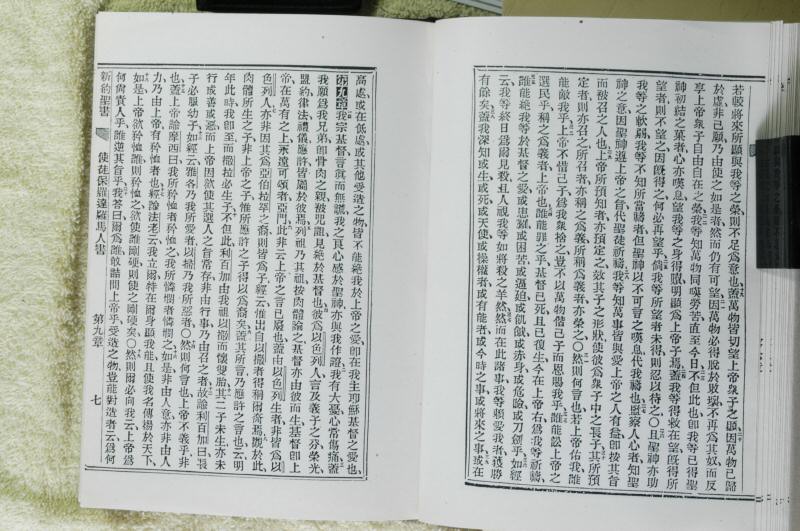 若較將來所顯與我等之榮則不足爲意也蓋萬物皆切望上帝衆子之顯因萬物已歸
於虛非已願乃由使之如是者然而仍有可望因萬物必得脫於敗壞不再爲其奴而反
享上帝衆子自由自在之榮我等知萬物同嘆勞苦直至今日不但此也卽我等已得聖
神初結之菓者心亦嘆息望我等之身得贖明顯爲上帝子焉蓋我等得救在望旣得所
望者則不望之因旣得之何必再望乎倘我等所望者未得則忍以待之〇且聖神亦助
我等之軟弱我等不知所當禱者但聖神以不可言之嘆息代我禱也鑒察人心者知聖
神之意因聖神遵上帝之旨代聖徒祈禱我等知萬事皆與愛上帝之人有益卽按其旨
而被召之人也上帝所預知者亦預定之效其子之形狀使彼爲衆子中之長子其所預
定者則亦召之所召者亦稱之爲義所稱爲義者亦榮之〇然則何言也若上帝佑我誰
能敵我乎上帝不惜己子爲我衆捨之豈不以萬物偕己子而恩賜我乎誰能訟上帝之
選民乎稱之爲義者上帝也誰能罪之乎基督已死且已復生今在上帝右爲我等祈禱
誰能絶我等於基督之愛或患難或困苦或逼迫或飢餓或赤身或危險或刀劍乎如經
云我等終日爲爾見殺且人視我等如將殺之羊然然而在此諸事我等賴愛我者獲勝
有餘矣蓋我深知或生或死或天使或操權者或有能者或今時之事或將來之事或在
高處或在低處或其他受造之物皆不能絶我於上帝之愛卽在我主耶穌基督之愛也
第九章我宗基督言眞而無謊我之良心感於聖神亦與我作證我有大憂心常傷痛蓋
我願爲我兄弟卽骨肉之親被咒詛見絶於基督也彼爲以色列人言及義子之分榮光
盟約律法禮儀應許皆屬於彼焉列祖乃其祖按肉體論之基督亦由彼而生基督卽上
帝在萬有之上永遠可頌者亞門此非云上帝之言已廢也蓋由以色列生者非皆爲以
色列人亦非因其爲亞伯拉罕之裔則皆爲子經云惟出自以撒者得稱爾裔焉觀於此
肉體所生之子非上帝之子惟所應許之子得以爲裔矣蓋其所言乃應許之言也云明
年此時我卽至而撒拉必生子不但此利百加由我祖以撒而懷雙胎其二子未生亦未
行或善或惡而上帝因欲使其選人之旨常存非由行事乃由召之者故諭利百加曰長
子必服幼子如經云雅各乃我所愛者以掃乃我所惡者〇然則何言也上帝不義乎非
也蓋上帝諭摩西曰我所矜恤者矜恤之我所憐憫者憐憫之如是非由人意亦非由人
力乃由上帝有矜恤者也經諭法老云我立爾特在爾身顯我能且使我名傳揚於天下
如是上帝欲矜恤誰則矜恤之欲使誰剛硬則使之剛硬矣〇然則爾必向我云上帝爲
何尙責人乎誰逆其旨乎我答曰爾爲誰敢詰問上帝乎受造之物豈能對造者云爲何
新約聖書 使徒保羅達羅馬人書 第九章 七